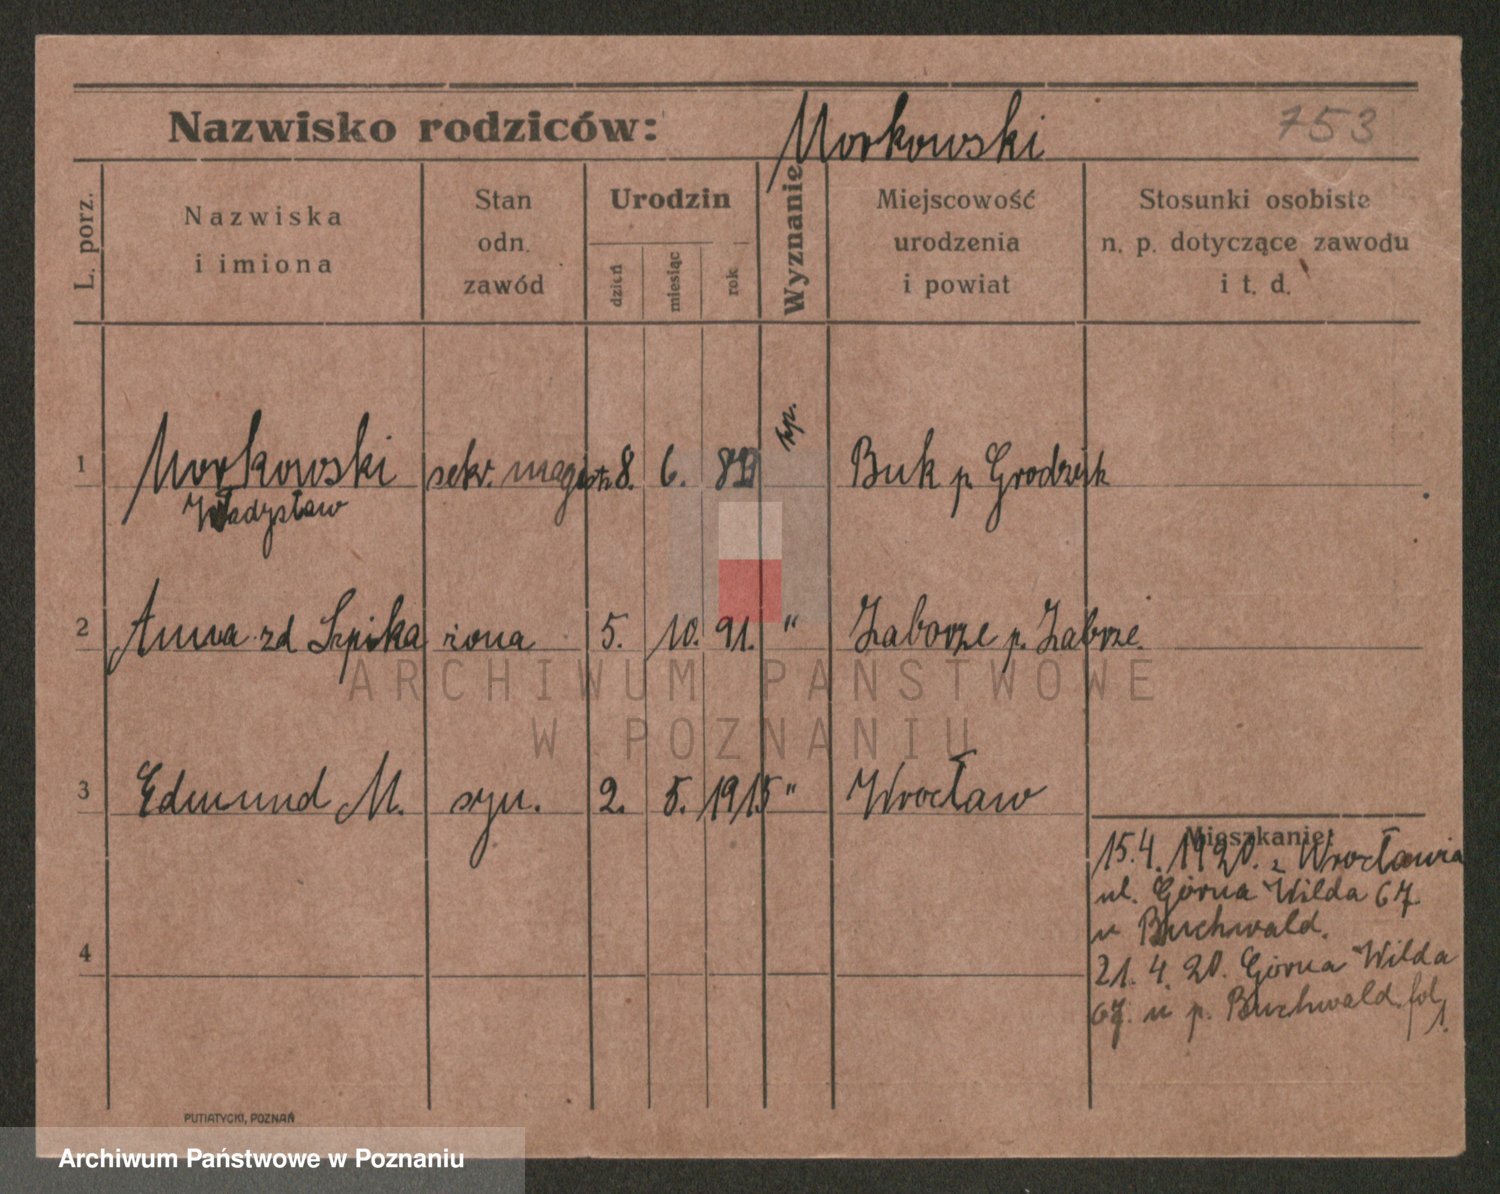 Nazwisko rodziców: Morkowski 753
L. porz.
Nazwiska
i imiona
Stan
odn.
zawód
Urodzin
dzień
miesiąc
rok
Wyznanie
Miejscowość
urodzenia
i powiat
Stosunki osobiste
n. p. dotyczące zawodu
i t. d.
1 Morkowski sekr. magistr. 8. 6. Buk p. Grodzisk
Władysław
2 Anna zd Szpika żona 5. 10. 91. " Zaborze p. Zabrze.
3 Edmund M. syn. 2. 5. 1915 " Wrocław
Mieszkanie:
15.4.1920. z Wrocławia
ul. Górna Wilda 67
u Buchwald.
21. 4. 20. Górna Wilda
67. u p. Buchwald.
4
PUTIATYCKI, POZNAŃ
ARCHIWUM PAŃSTWOWE
W POZNANIU
Archiwum Państwowe w Poznaniu